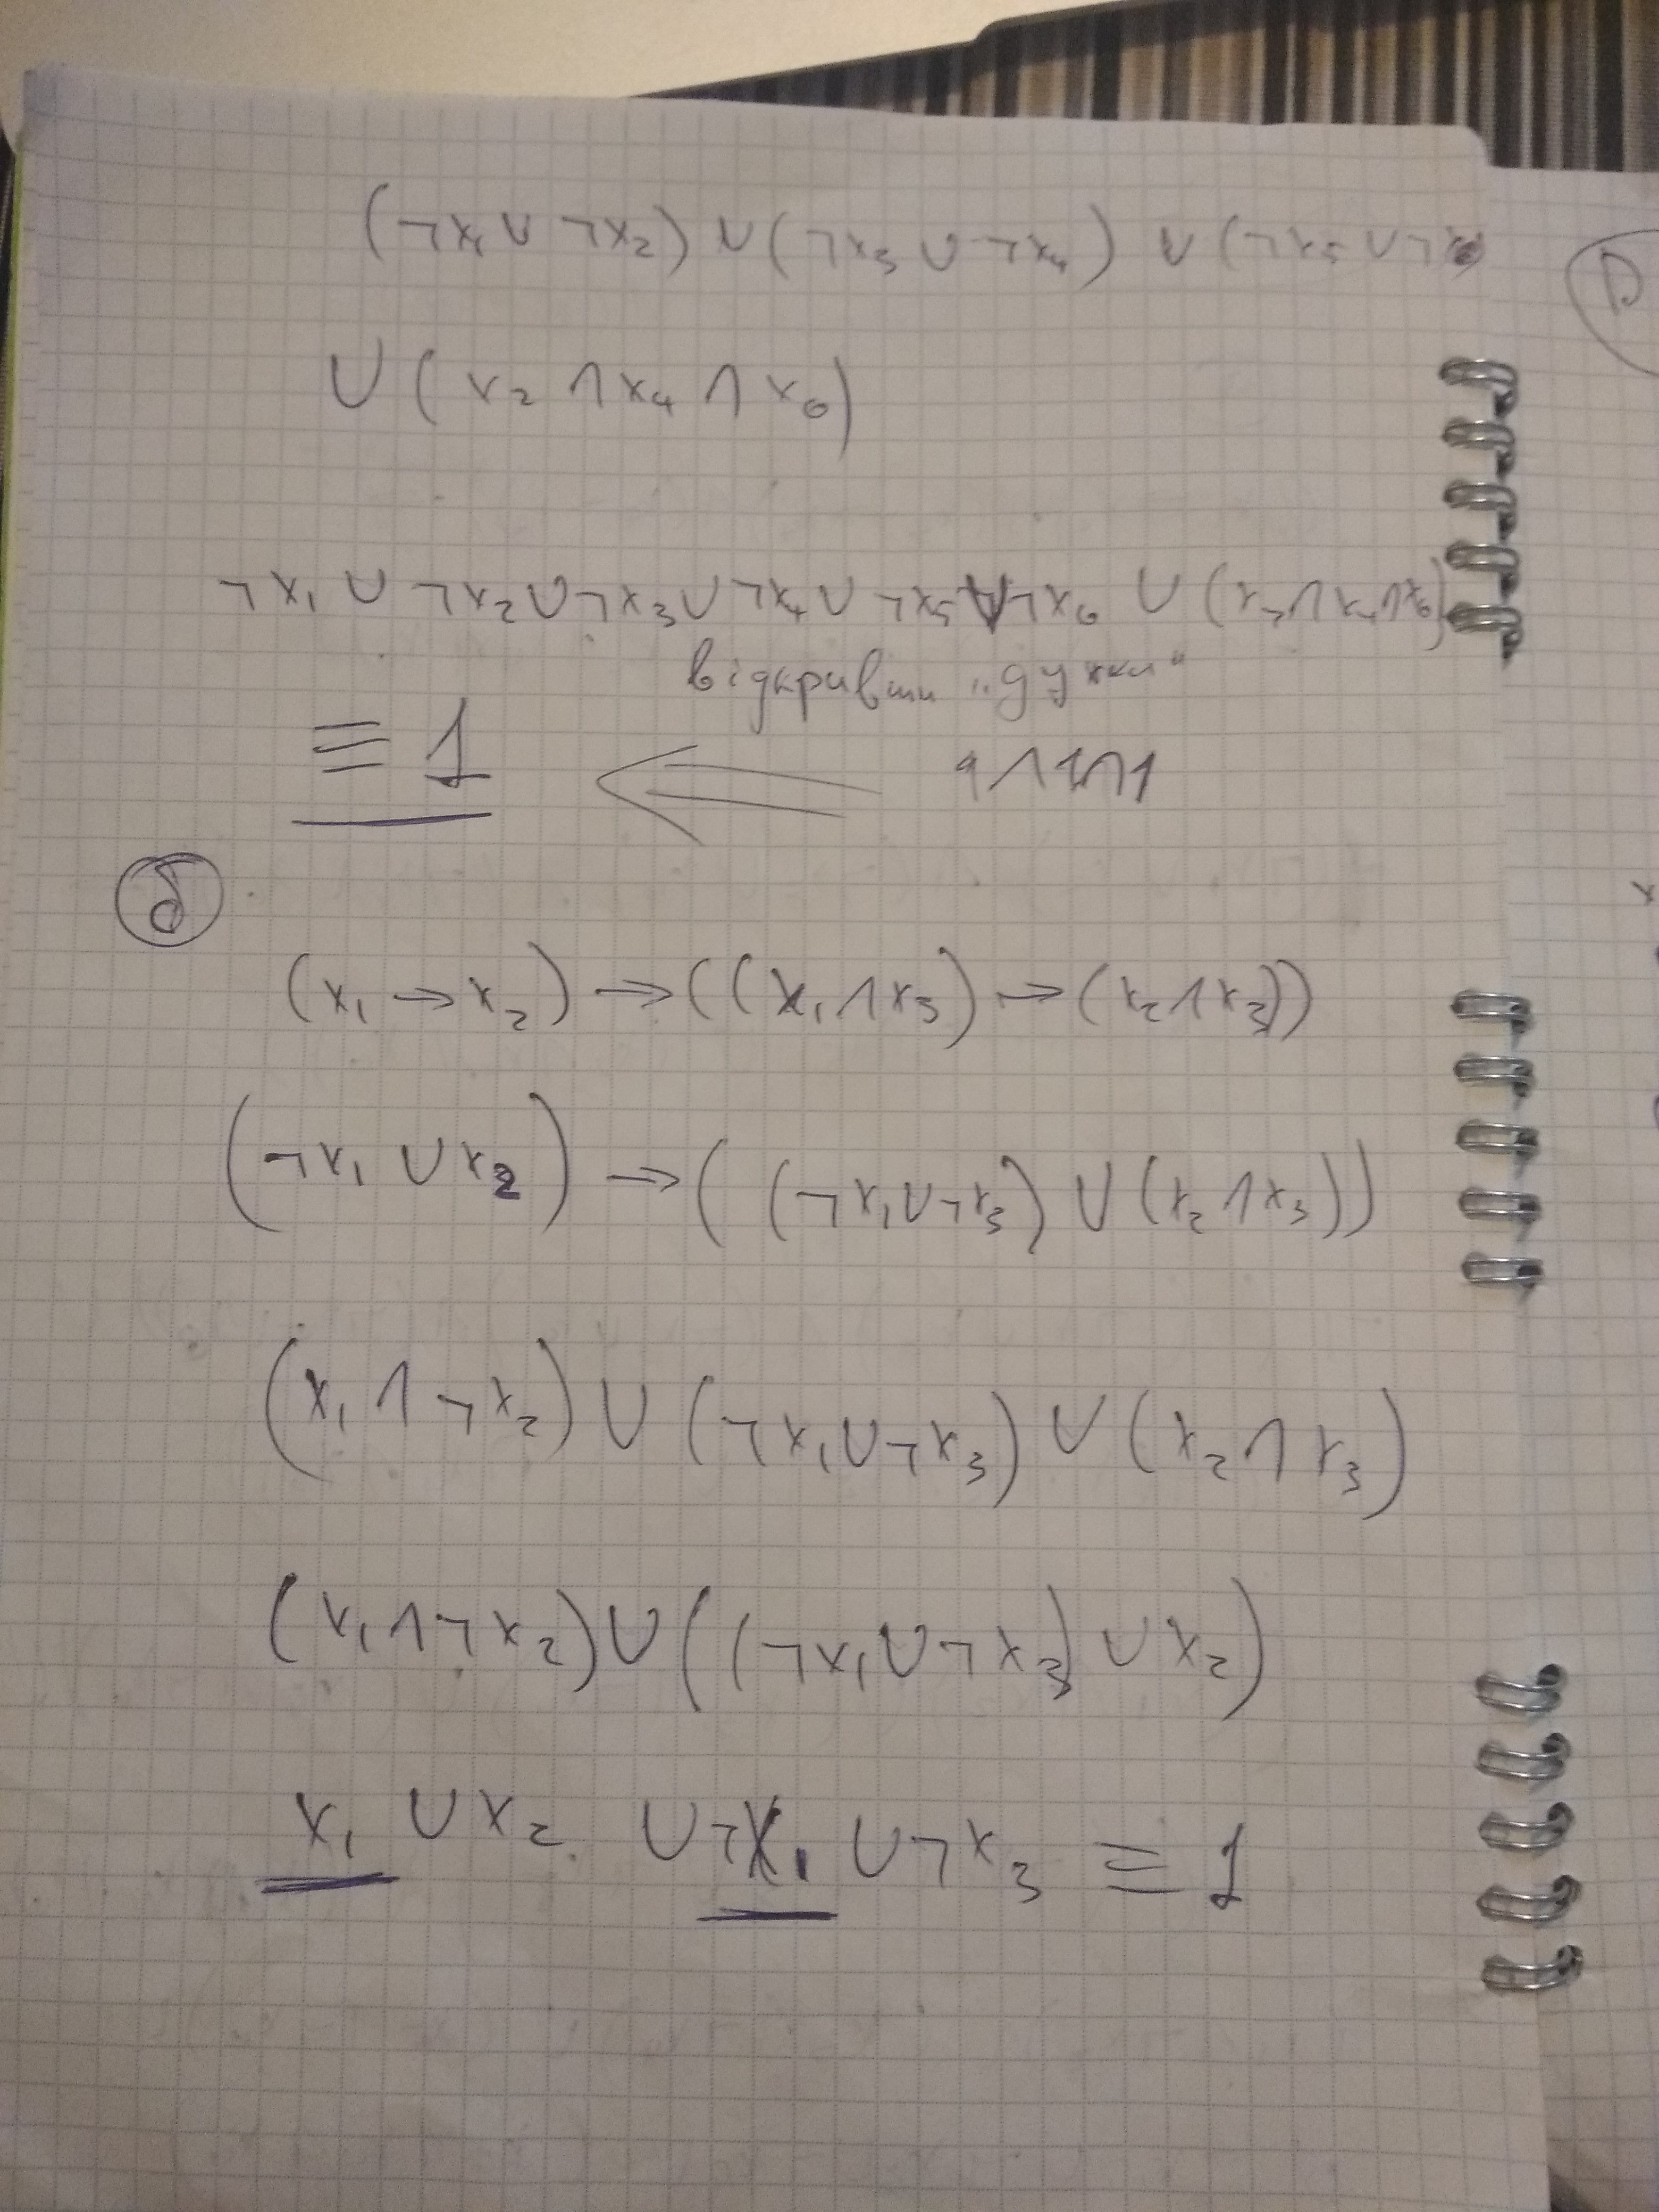 (¬x₁ ∪ ¬x₂) ∪ (¬x₃ ∪ ¬x₄) ∪ (¬x₅ ∪ ¬x₆
∪ (x₂ ∧ x₄ ∧ x₆)
¬x₁ ∪ ¬x₂ ∪ ¬x₃ ∪ ¬x₄ ∪ ¬x₅ ∪ ¬x₆ ∪ (x₂ ∧ x₄ ∧ x₆)
відкривши „дужки“
≡ 1 ⇐ 1 ∧ 1 ∧ 1
б
(x₁ → x₂) → ((x₁ ∧ x₃) → (x₂ ∧ x₃))
(¬x₁ ∪ x₂) → ((¬x₁ ∪ ¬x₃) ∪ (x₂ ∧ x₃))
(x₁ ∧ ¬x₂) ∪ (¬x₁ ∪ ¬x₃) ∪ (x₂ ∧ x₃)
(x₁ ∧ ¬x₂) ∪ ((¬x₁ ∪ ¬x₃) ∪ x₂)
x₁ ∪ x₂ ∪ ¬x₁ ∪ ¬x₃ ≡ 1